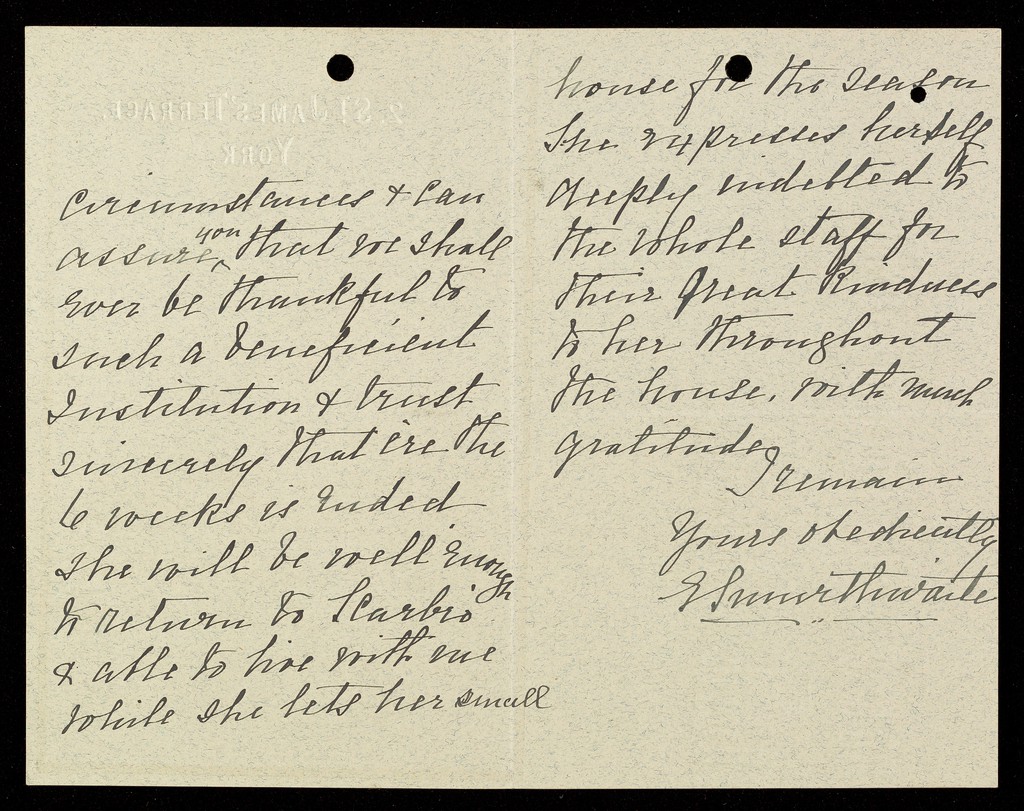 2. ST JAMES' TERRACE,
YORK
circumstances & can
assure you that we shall
ever be thankful to
such a beneficient
Institution & trust
sincerely that ere the
6 weeks is ended
she will be well enough
to return to Scarbro'
& able to live with me
while she lets her small
house for the season
She expresses herself
deeply indebted to
the whole staff for
their great kindness
to her throughout
the house, with much
gratitude,
I remain
Yours obediently
E Smurthwaite